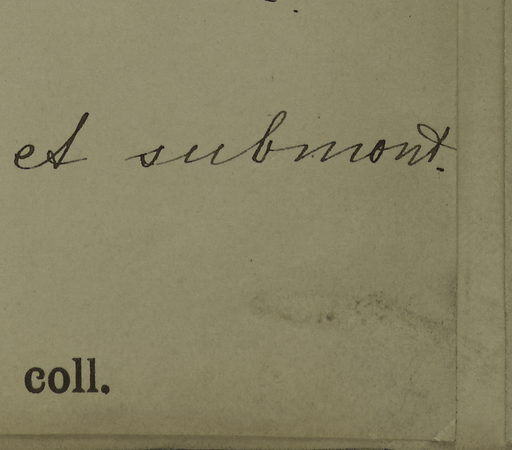 et submont.
coll.